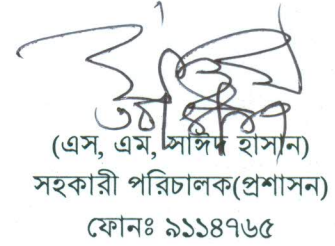 (এস, এম, সাঈদ হাসান)
সহকারী পরিচালক(প্রশাসন)
ফোনঃ ৯১১৪৭৬৫